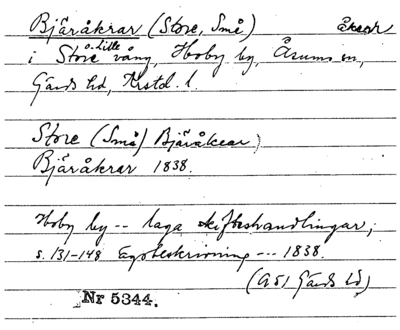 Bjäråkrar (Store, Små) åkear
i Store o. Lille vång, Hoby by, Årums sn,
Gärds hd, Krstd. l.
Store (Små) Bjäråkear,
Bjäråkrar 1838.
Hoby by -- laga skifteshandlingar;
s. 131-148 Egobeskrivning --- 1838.
(A51 Gärds hd)
Nr 5344.